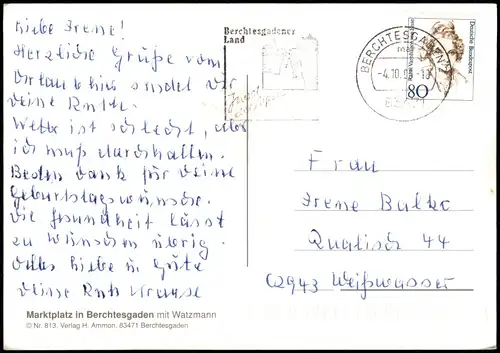 Liebe Irene!
Herzliche Grüße vom
Urlaub hier sendet dir
deine Ruth.
Wetter ist schlecht, aber
ich muß durchhalten.
Besten Dank für deine
Geburtstagswünsche.
Die Gesundheit lässt
zu wünschen übrig.
Alles Liebe u Gute
deine Ruth Krause
Marktplatz in Berchtesgaden mit Watzmann
© Nr. 813. Verlag H. Ammon. 83471 Berchtesgaden
Berchtesgadener
Land
BERCHTESGADEN
-4.10.
Deutsche Bundespost
80
Frau
Irene Balko
44
02943 Weißwasser